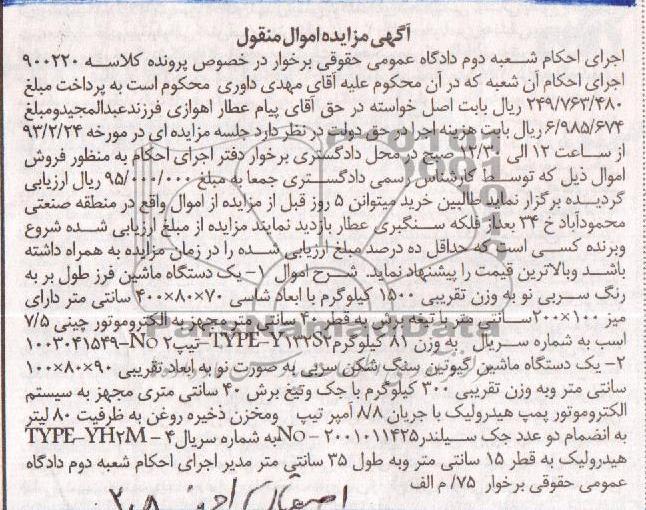 آگهی مزایده اموال منقول
اجرای احکام شعبه دوم دادگاه عمومی حقوقی برخوار در خصوص پرونده کلاسه ۹۰۰۲۲۰
اجرای احکام آن شعبه که در آن محکوم علیه آقای مهدی داوری محکوم است به پرداخت مبلغ
۲۴۹/۷۶۳/۴۸۰ ریال بابت اصل خواسته در حق آقای پیام عطار اهوازی فرزندعبدالمجیدومبلغ
۶/۹۸۵/۶۷۴ ریال بابت هزینه اجرا در حق دولت در نظر دارد جلسه مزایده ای در مورخه ۹۳/۲/۲۴
از ساعت ۱۲ الی ۱۲/۳۰ صبح در محل دادگستری برخوار دفتر اجرای احکام به منظور فروش
اموال ذیل که توسط کارشناس رسمی دادگستری جمعا به مبلغ ۹۵/۰۰۰/۰۰۰ ریال ارزیابی
گردیده برگزار نماید طالبین خرید میتوانن ۵ روز قبل از مزایده از اموال واقع در منطقه صنعتی
محمودآباد خ ۳۴ بعداز فلکه سنگبری عطار بازدید نمایند مزایده از مبلغ ارزیابی شده شروع
وبرنده کسی است که حداقل ده درصد مبلغ ارزیابی شده را در زمان مزایده به همراه داشته
باشد وبالاترین قیمت را پیشنهاد نماید. شرح اموال ۱- یک دستگاه ماشین فرز طول بر به
رنگ سربی نو به وزن تقریبی ۱۵۰۰ کیلوگرم با ابعاد شاسی ۷۰×۸۰×۴۰۰ سانتی متر دارای
میز ۱۰۰×۲۰۰سانتی متر با تیغه برش به قطر ۴۰ سانتی متر مجهز به الکتروموتور چینی ۷/۵
اسب به شماره سریال به وزن ۸۱ کیلوگرم TYPE-Y۱۳۲S۲-تیپ۲ No-۱۰۰۳۰۴۱۵۴۹
۲- یک دستگاه ماشین گیوتین سنگ شکن سربی به صورت نو به ابعاد تقریبی ۹۰×۸۰×۱۰۰
سانتی متر وبه وزن تقریبی ۳۰۰ کیلوگرم با جک وتیغ برش ۴۰ سانتی متری مجهز به سیستم
الکتروموتور پمپ هیدرولیک با جریان ۸/۸ آمپر تیپ ومخزن ذخیره روغن به ظرفیت ۸۰ لیتر
به انضمام دو عدد جک سیلندر۲۰۰۱۰۱۱۴۲۵ – Noبه شماره سریال۴ – TYPE-YH۲M
هیدرولیک به قطر ۱۵ سانتی متر وبه طول ۳۵ سانتی متر مدیر اجرای احکام شعبه دوم دادگاه
عمومی حقوقی برخوار ۷۵/ م الف
ParsNamadData